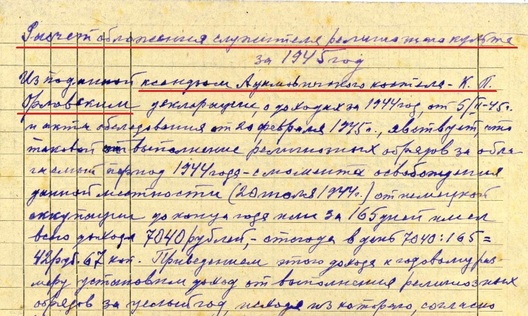 Расчет обложения служителя религиозного культа
за 1945 год
Из поданной ксендзом костела - К. П.
Орловским декларации, о доходах за 1944 год, от 5/II-45г.
и акта обследования от 20 февраля 1945г., явствует что
таковой от выполнение религиозных обрядов за обла-
гаемый период 1944 года - с момента освобождения
данной местности (20 июля 1944г.) от немецкой
аккупации до конца года или за 165 дней имел
всего дохода 7040 рублей, - отсюда в день 7040:165=
42 руб. 67 коп. Приведением этого дохода к годовому раз-
меру установлен доход от выполнения религиозных
обрядов за целый год, исходя из которого, согласно